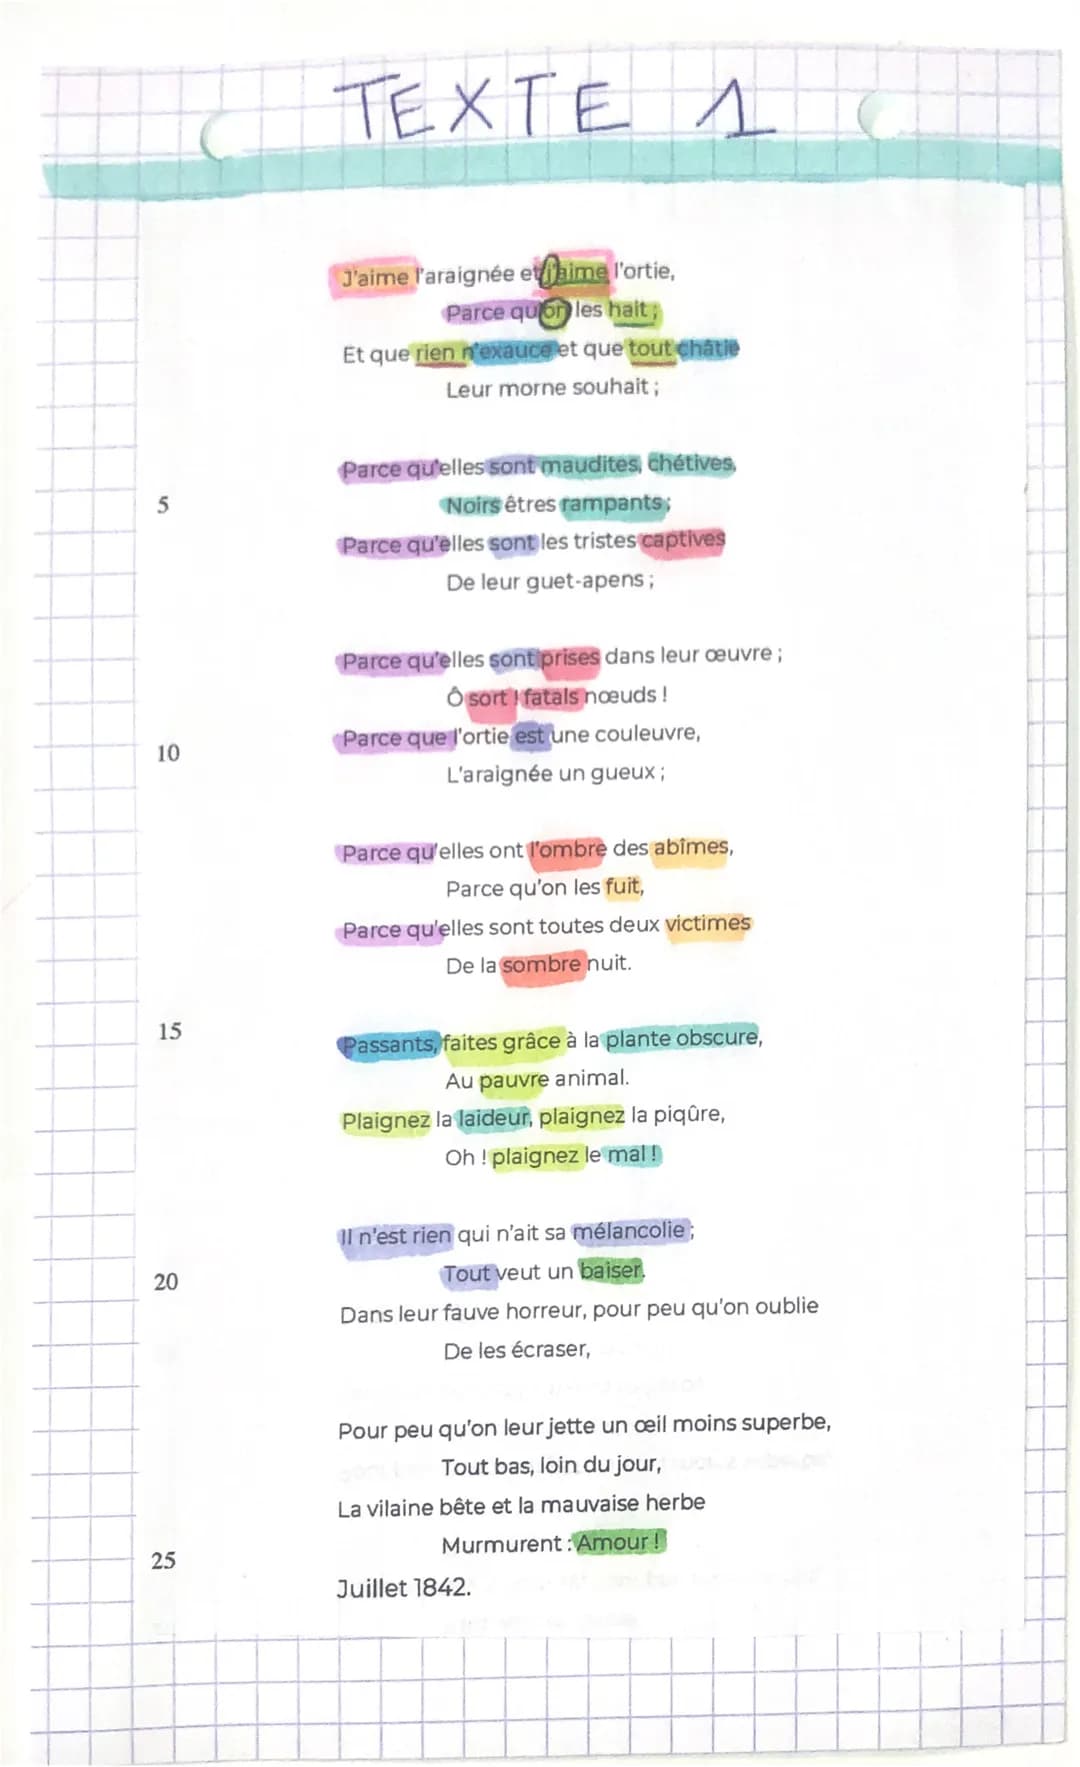 TEXTE 1
J'aime l'araignée et j'aime l'ortie,
Parce qu'on les hait ;
Et que rien n'exauce et que tout châtie
Leur morne souhait ;
Parce qu'elles sont maudites, chétives,
5 Noirs êtres rampants ;
Parce qu'elles sont les tristes captives
De leur guet-apens ;
Parce qu'elles sont prises dans leur œuvre ;
Ô sort ! fatals nœuds !
10 Parce que l'ortie est une couleuvre,
L'araignée un gueux ;
Parce qu'elles ont l'ombre des abîmes,
Parce qu'on les fuit,
Parce qu'elles sont toutes deux victimes
De la sombre nuit.
15 Passants, faites grâce à la plante obscure,
Au pauvre animal.
Plaignez la laideur, plaignez la piqûre,
Oh ! plaignez le mal !
Il n'est rien qui n'ait sa mélancolie ;
20 Tout veut un baiser.
Dans leur fauve horreur, pour peu qu'on oublie
De les écraser,
Pour peu qu'on leur jette un œil moins superbe,
Tout bas, loin du jour,
La vilaine bête et la mauvaise herbe
25 Murmurent : Amour !
Juillet 1842.